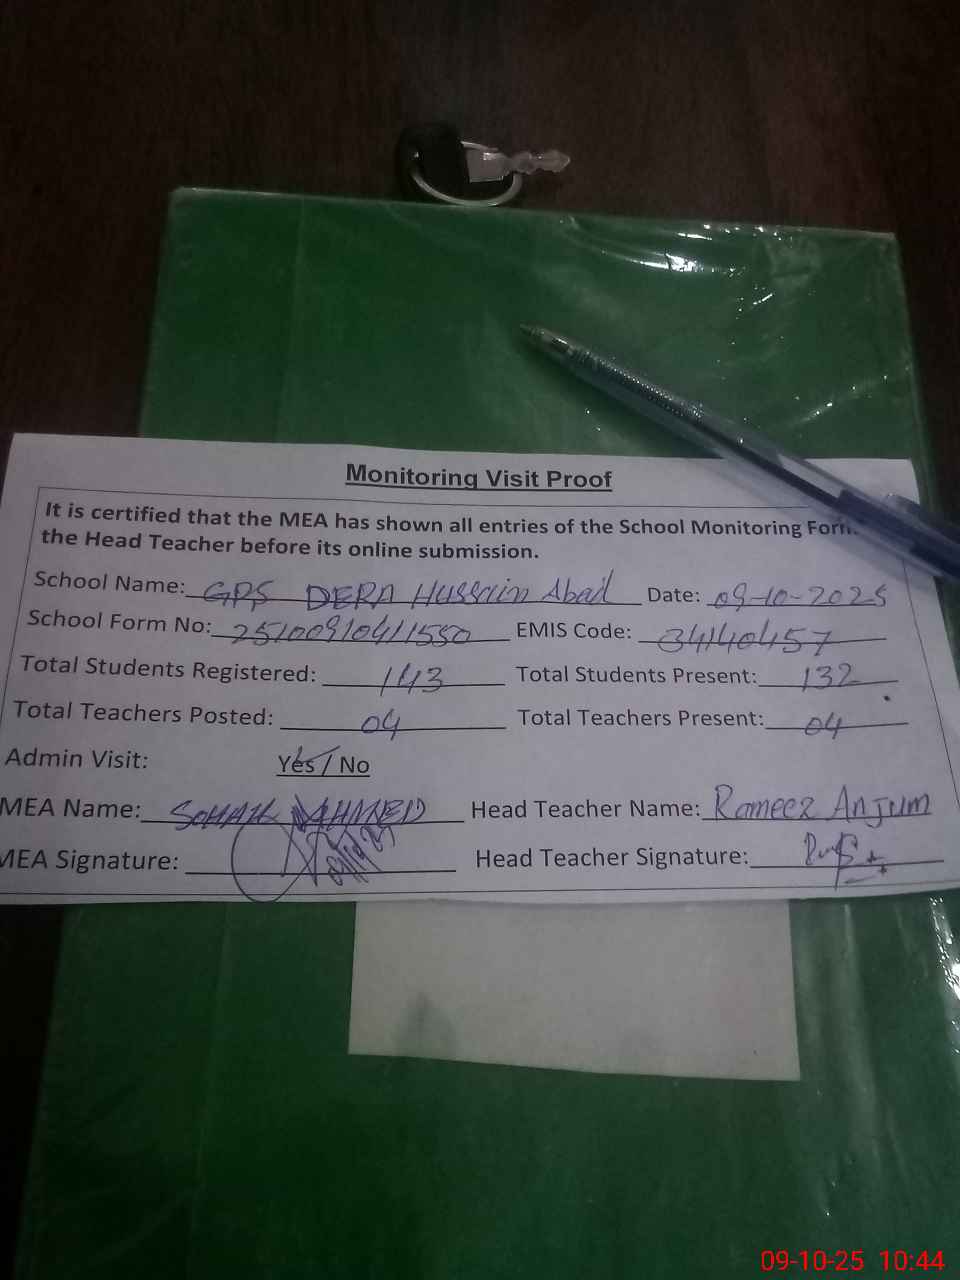 Monitoring Visit Proof
It is certified that the MEA has shown all entries of the School Monitoring Form
the Head Teacher before its online submission.
School Name: GPS DERA Hussain Abad Date: 09-10-2025
School Form No: 25100910411550 EMIS Code: 34140457
Total Students Registered: 143 Total Students Present: 132
Total Teachers Posted: 04 Total Teachers Present: 04
Admin Visit: Yes / No
MEA Name: SOHAIL AHMED Head Teacher Name: Rameez Anjum
MEA Signature: Head Teacher Signature:
09-10-25 10:44